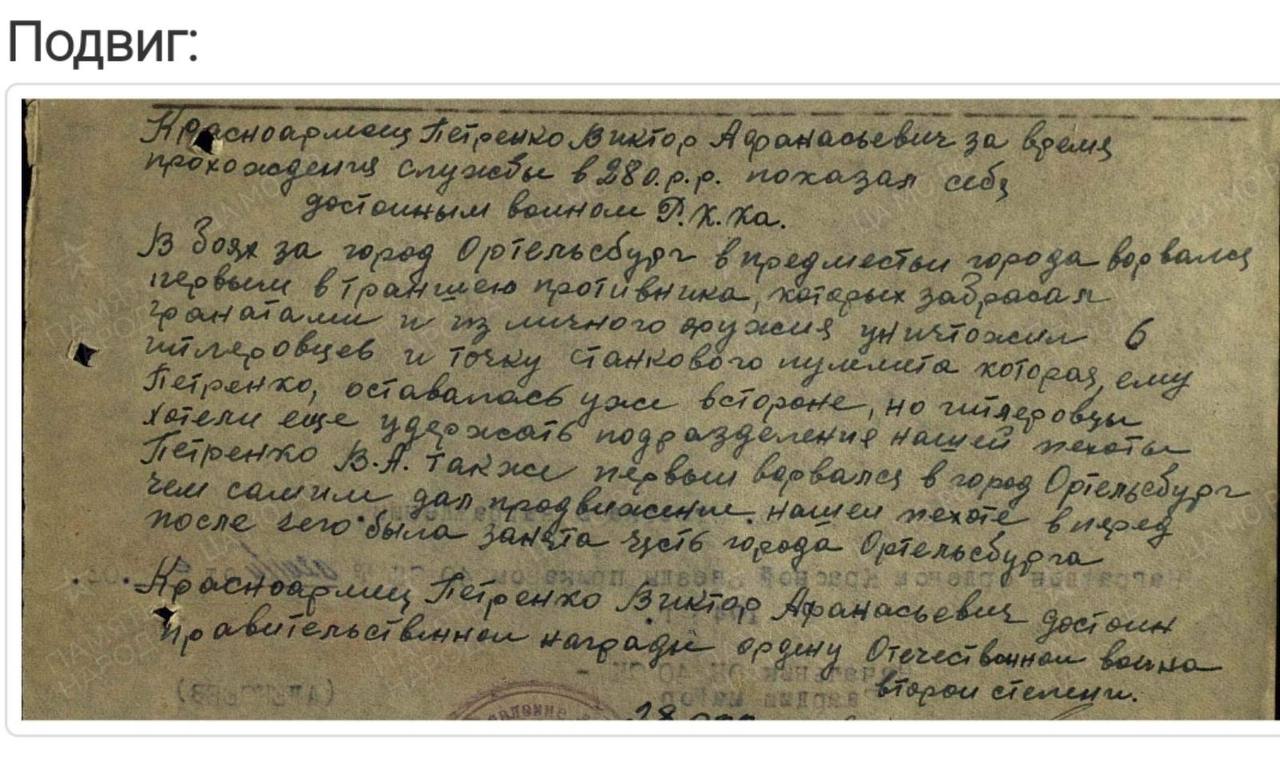 Подвиг:
Красноармеец Петренко Виктор Афранасьевич за время
прохождения службы в 280.р.р. показал себя
достоиным воином Р.К.Ка.
В боях за город Ортельсбург в предместьи города ворвался
первым в траншею противника, которых забрасал
гранатами и из личного оружия уничтожил 6
гитлеровцев и точку станкового пулемета которая, ему
Петренко, оставалась уже в стороне, но гитлеровцы
хотели еще удержать подразделения нашей пехоты
Петренко В.А. также первым ворвался в город Ортельсбург
чем самим дал продвижение нашей пехоте в перед
после чего была занята честь города Ортельсбурга
Красноармеец Петренко Виктор Афранасьевич достоин
правительственной награды ордену Отечественной воина
второй степени.